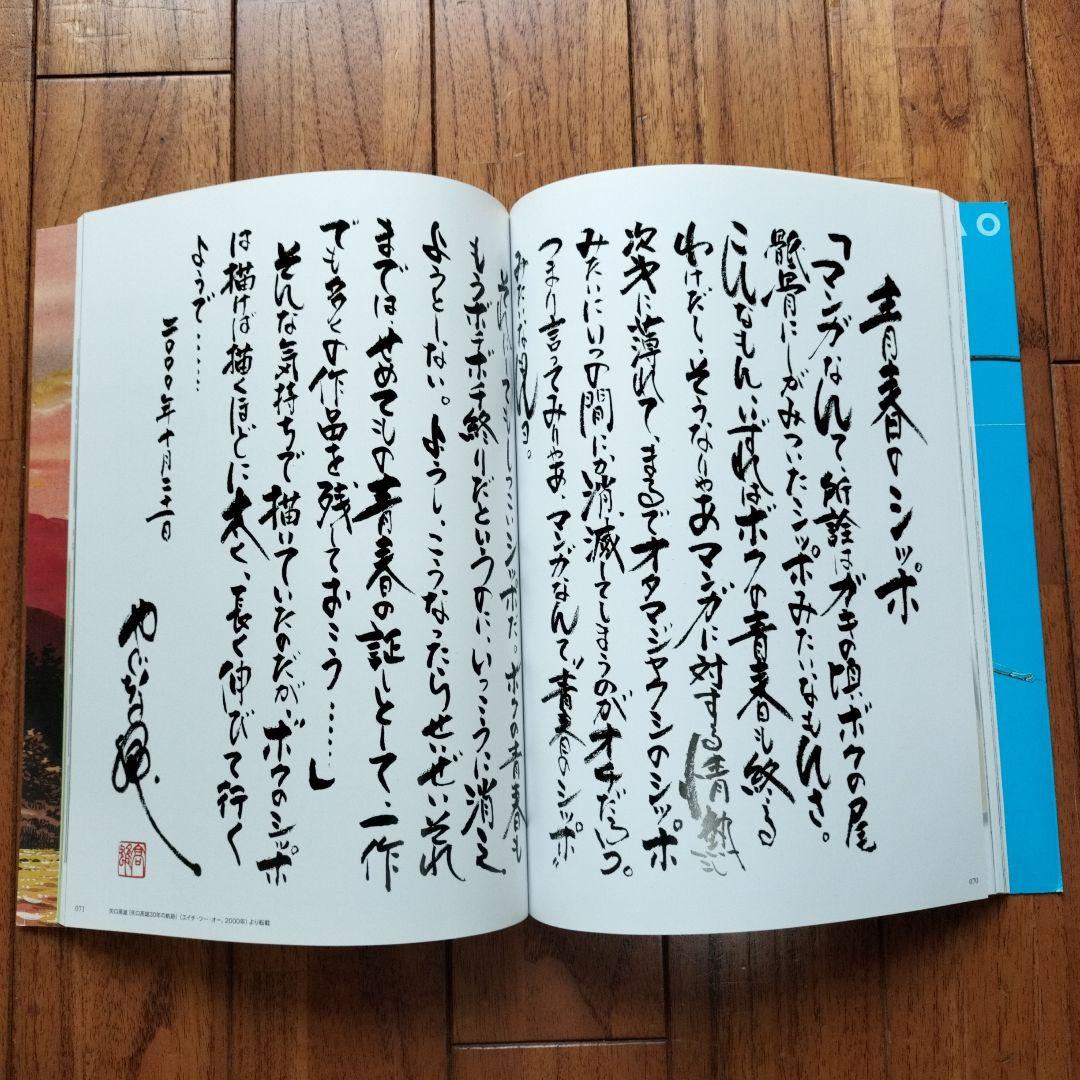 青春のシッポ
「マンガなんて、所詮はガキの頃、ボクの尾
骶骨にしがみついたシッポみたいなもんさ。
こんなもん、いずれはボクの青春も終る
わけだし、そうなりゃあマンガに対する情熱も
次才に薄れて、まるでオタマジャクシのシッポ
みたいにいつの間にか消滅してしまうのがオチだろう。
つまり言ってみりゃあ、マンガなんて、"青春のシッポ"
みたいな風景。
それにしてもしつこいシッポだ。ボクの青春も
もうボチボチ終りだというのに、いっこうに消え
ようとしない。ようし、こうなったらせいぜいそれ
までは せめてもの青春の証しとして、一作
でも多くの作品を残しておこう……」
そんな気持ちで描いていたのだが、ボクのシッポ
は描けば描くほどに太く、長く伸びて行く
ようで……
二〇〇〇年十月二十一日
070
071
矢口高雄『矢口高雄30年の軌跡』(エイチ・ツー・オー、2000年)より転載